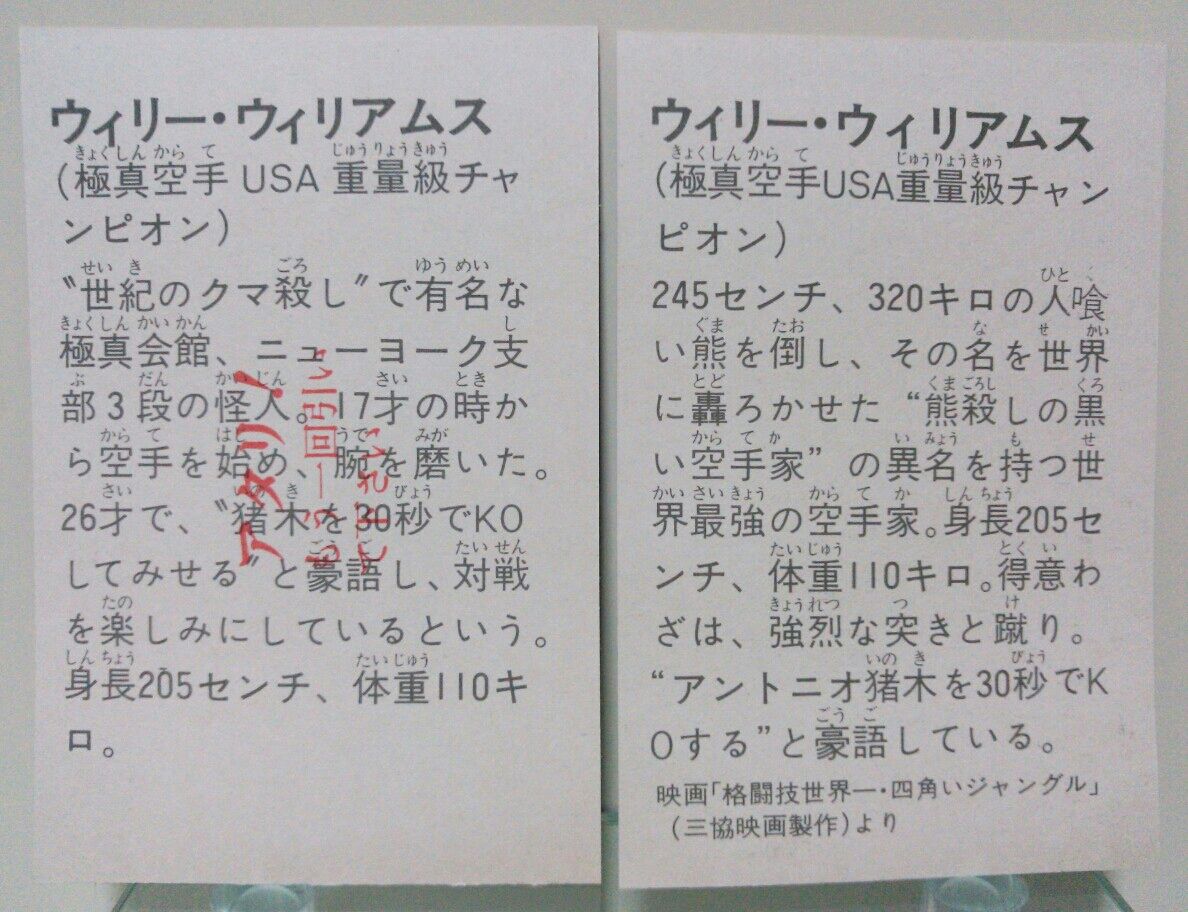 ウィリー・ウィリアムス
(極真空手 USA 重量級チャ
ンピオン)
〝世紀のクマ殺し〟で有名な
極真会館、ニューヨーク支
部3段の怪人。17才の時か
ら空手を始め、腕を磨いた。
26才で、〝猪木を30秒でKO
してみせる〟と豪語し、対戦
を楽しみにしているという。
身長205センチ、体重110キ
ロ。
アタリ!
もう一回引い
て下さい
ウィリー・ウィリアムス
(極真空手USA重量級チャン
ピオン)
245センチ、320キロの人喰
い熊を倒し、その名を世界
に轟ろかせた“熊殺しの黒
い空手家”の異名を持つ世
界最強の空手家。身長205セ
ンチ、体重110キロ。得意わ
ざは、強烈な突きと蹴り。
“アントニオ猪木を30秒でK
Oする”と豪語している。
映画「格闘技世界一・四角いジャングル」
(三協映画製作)より